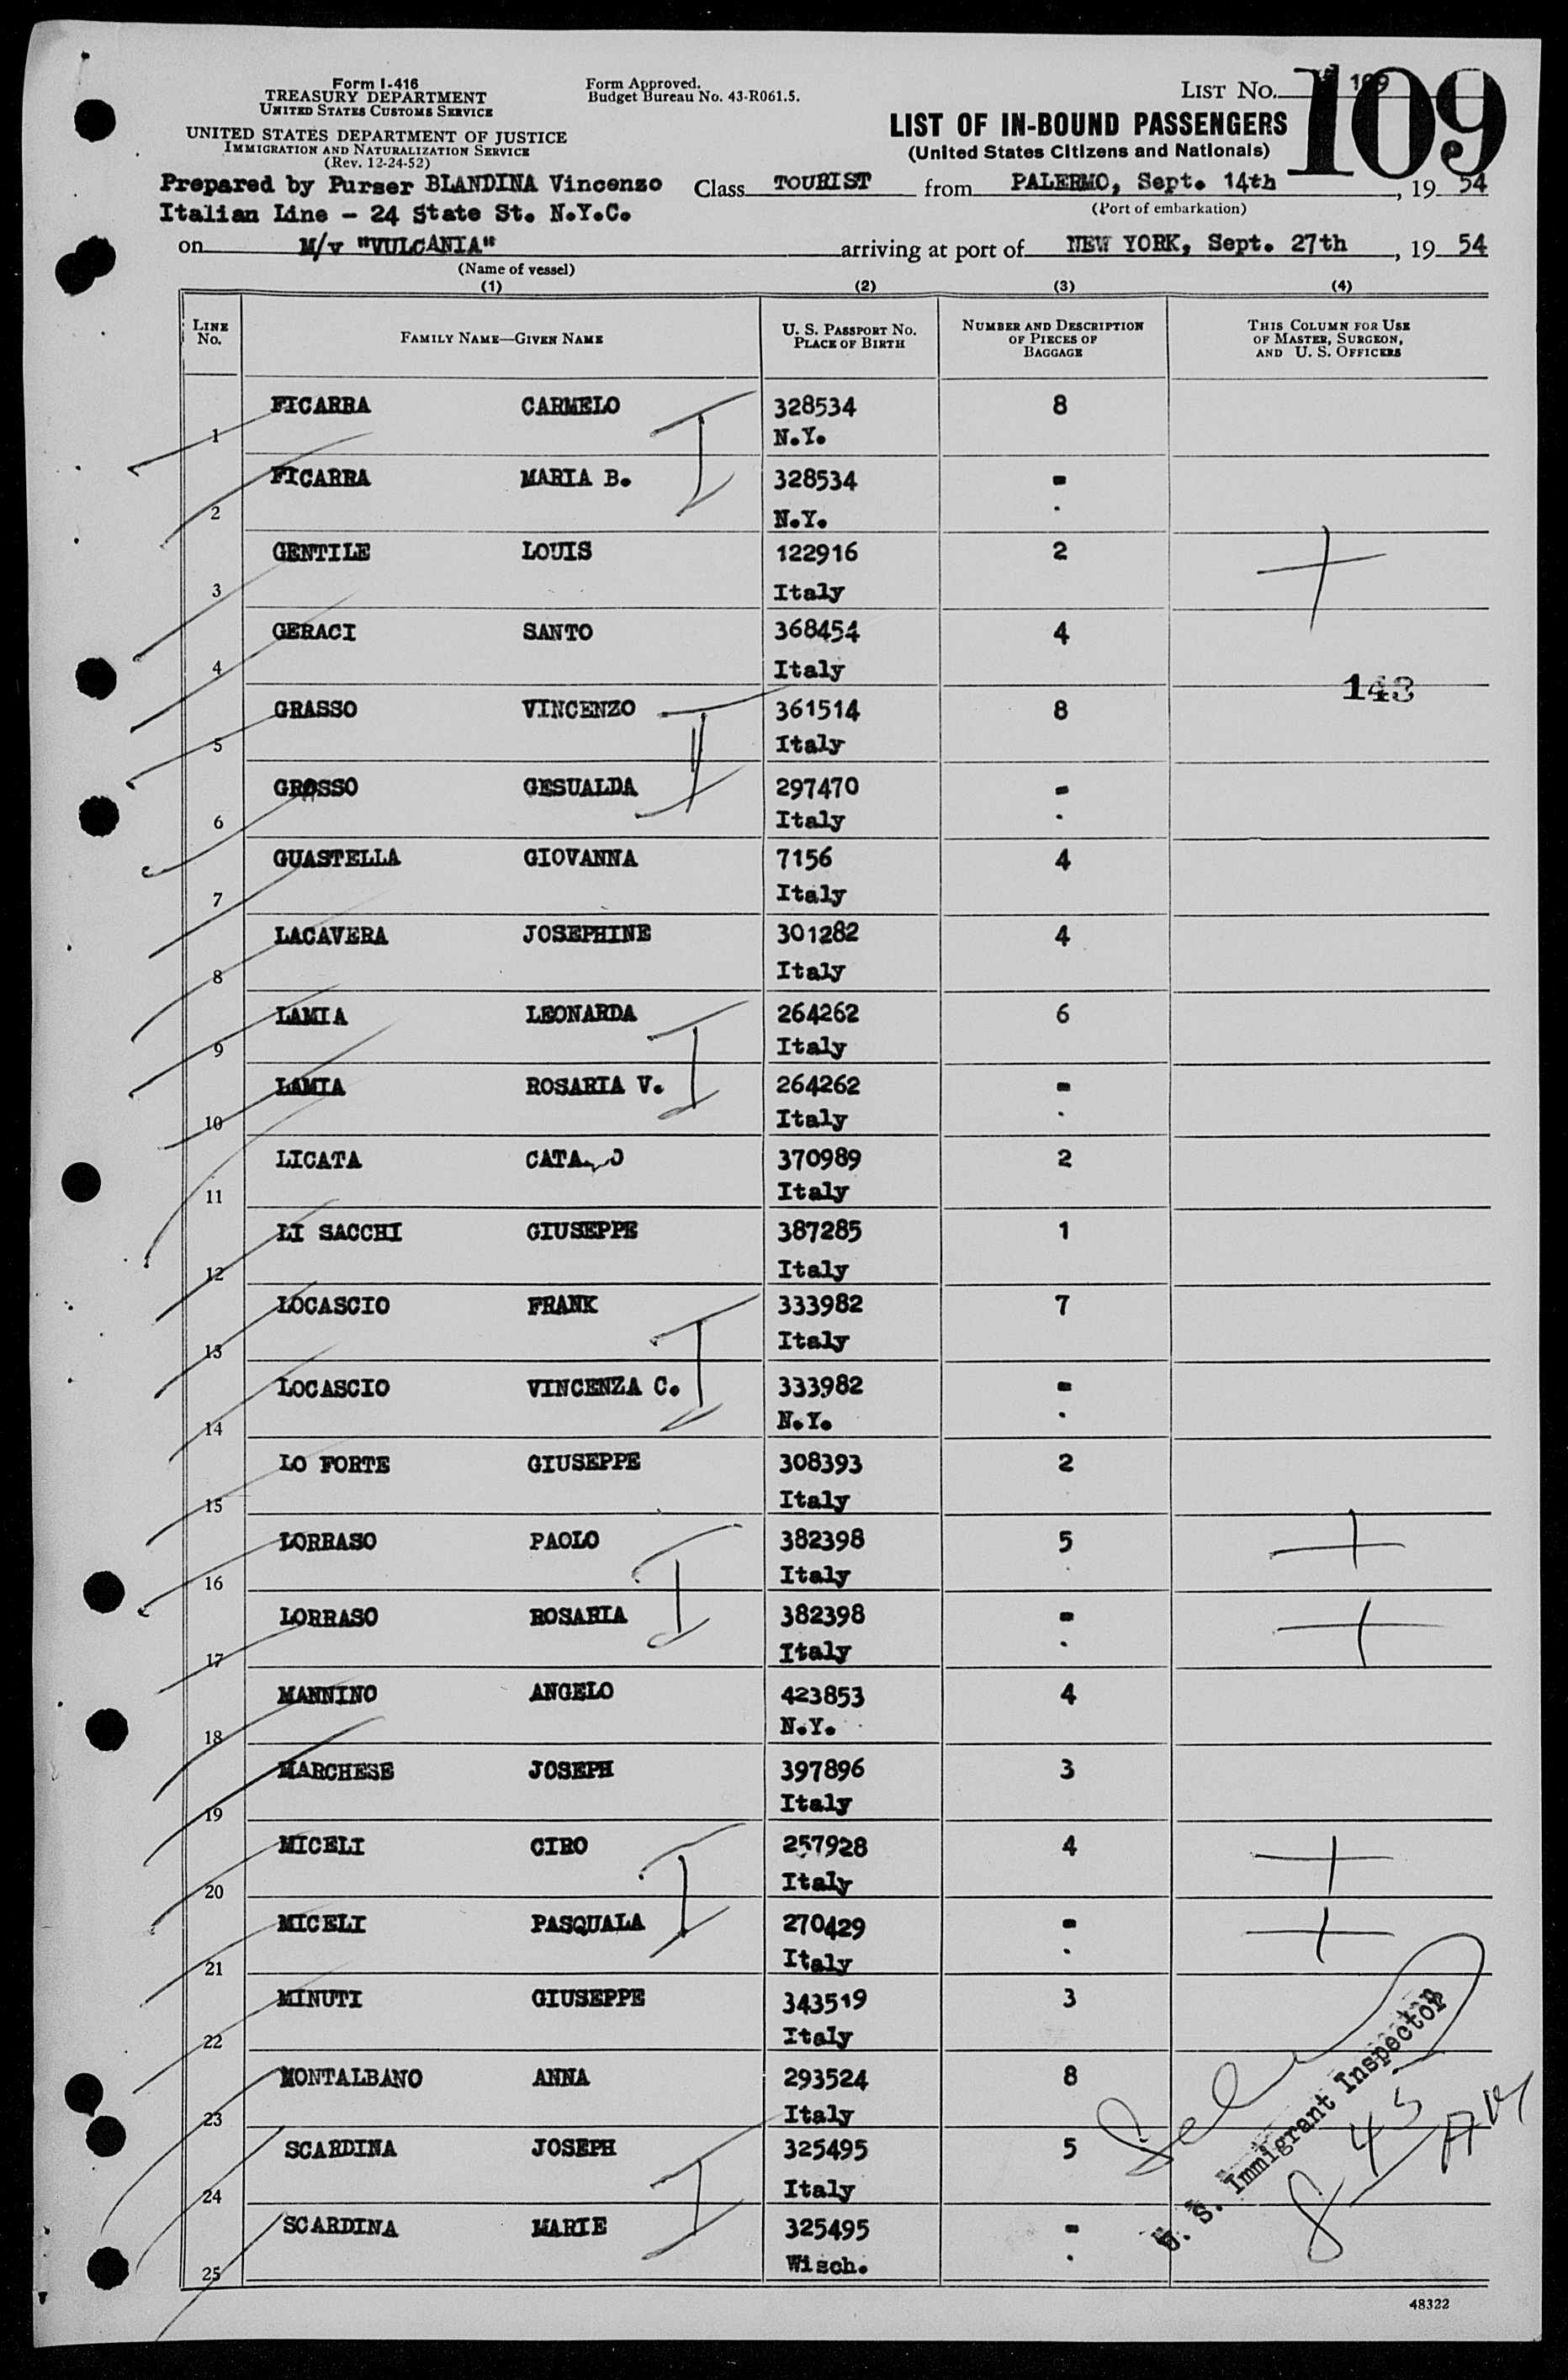 Form I-416
TREASURY DEPARTMENT
UNITED STATES CUSTOMS SERVICE
UNITED STATES DEPARTMENT OF JUSTICE
IMMIGRATION AND NATURALIZATION SERVICE
(Rev. 12-24-52)
Form Approved.
Budget Bureau No. 43-R061.5.
LIST NO. 109
109
LIST OF IN-BOUND PASSENGERS
(United States Citizens and Nationals)
Prepared by Purser BLANDINA Vincenzo Class TOURIST from PALERMO, Sept. 14th, 19 54
Italian Line - 24 State St. N.Y.C. (Port of embarkation)
on M/v "VULCANIA" arriving at port of NEW YORK, Sept. 27th, 19 54
(Name of vessel)
(1) (2) (3) (4)
LINE No. FAMILY NAME—GIVEN NAME U. S. PASSPORT NO. PLACE OF BIRTH NUMBER AND DESCRIPTION OF PIECES OF BAGGAGE THIS COLUMN FOR USE OF MASTER, SURGEON, AND U. S. OFFICERS
FICARRA CARMELO 328534 8
1 N.Y.
FICARRA MARIA B. 328534 -
2 N.Y. .
GENTILE LOUIS 122916 2 +
3 Italy
GERACI SANTO 368454 4
4 Italy
143
GRASSO VINCENZO 361514 8
5 Italy
GROSSO GESUALDA 297470 -
6 Italy .
GUASTELLA GIOVANNA 7156 4
7 Italy
LACAVERA JOSEPHINE 301282 4
8 Italy
LAMIA LEONARDA 264262 6
9 Italy
LAMIA ROSARIA V. 264262 -
10 Italy .
LICATA 370989 2
11 Italy
LI SACCHI GIUSEPPE 387285 1
12 Italy
LOCASCIO FRANK 333982 7
13 Italy
LOCASCIO VINCENZA C. 333982 -
14 N.Y. .
LO FORTE GIUSEPPE 308393 2
15 Italy
LORRASO PAOLO 382398 5 +
16 Italy
LORRASO ROSARIA 382398 - +
17 Italy .
MANNINO ANGELO 423853 4
18 N.Y.
MARCHESE JOSEPH 397896 3
19 Italy
MICELI CIRO 257928 4 +
20 Italy
MICELI PASQUALA 270429 - +
21 Italy .
MINUTI GIUSEPPE 343519 3
22 Italy
MONTALBANO ANNA 293524 8
23 Italy
SCARDINA JOSEPH 325495 5
24 Italy
SCARDINA MARIE 325495 -
25 Wisch. .
U. S. Immigrant Inspector
8 45 AM
48322